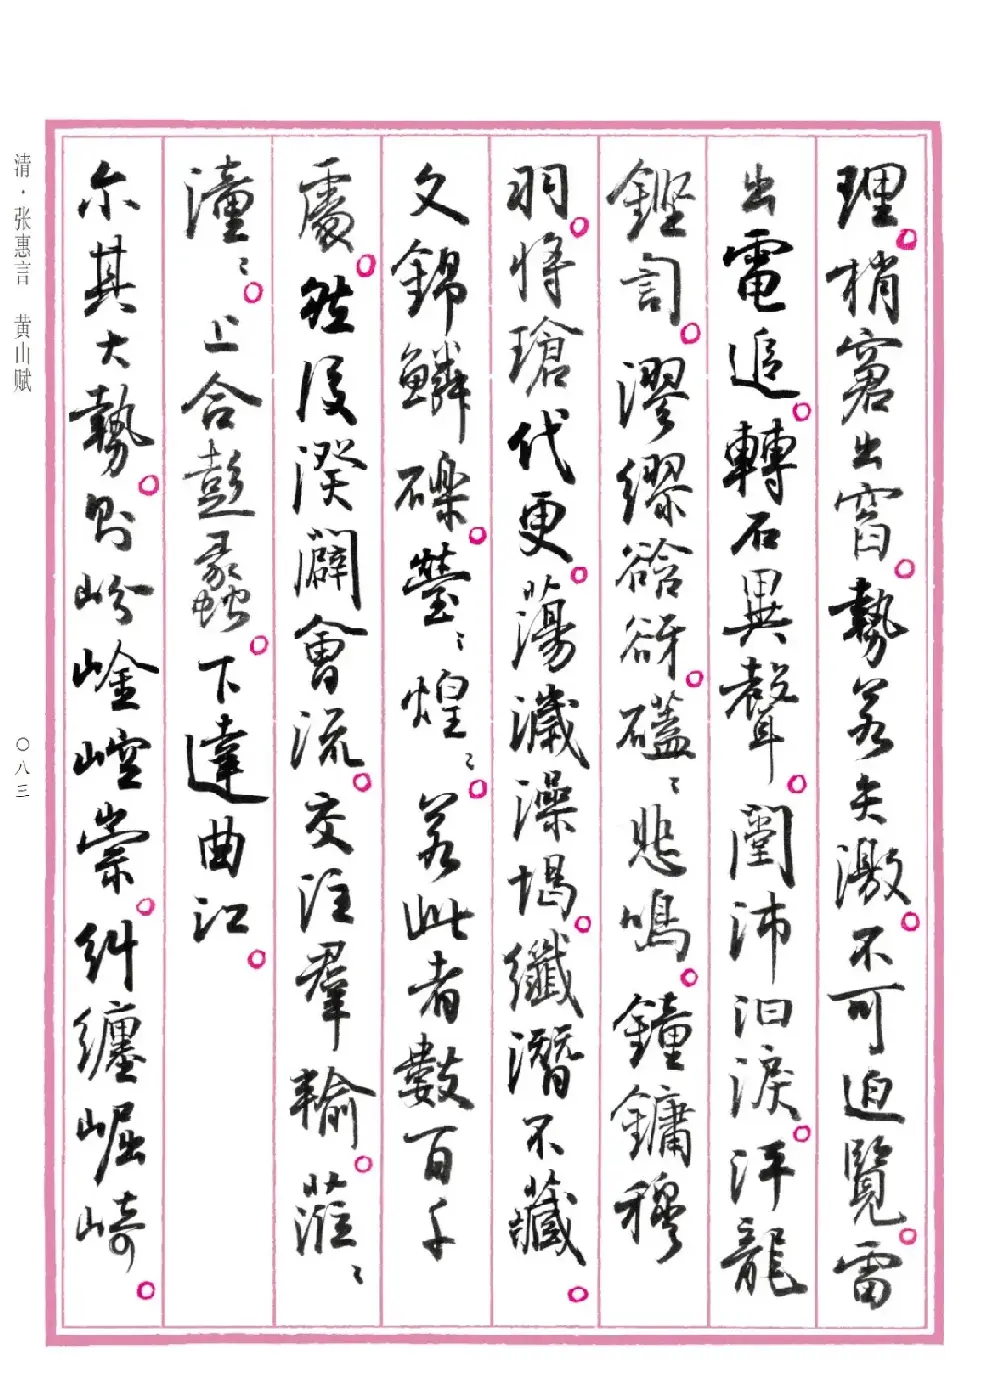 理。梢窻出窅。勢若矢激。不可迫覽。雷
出電追。轉石異聲。闛沛汩淚。泙龍
鏗訇。漻繆谽谺。礚〻悲鳴。鐘鏞穆
羽。将瑲代更。蕩濊澡堨。纖潛不藏。
文錦鱗礫。瑩〻煌〻。若此者數百千
處。然後湀闢會流。交注羣輸。漼〻
潼〻。上合彭蠡。下達曲江。
尔其大勢。則岎崯崆崇。糾纏崛崎。
清·张惠言 黄山赋
〇八三